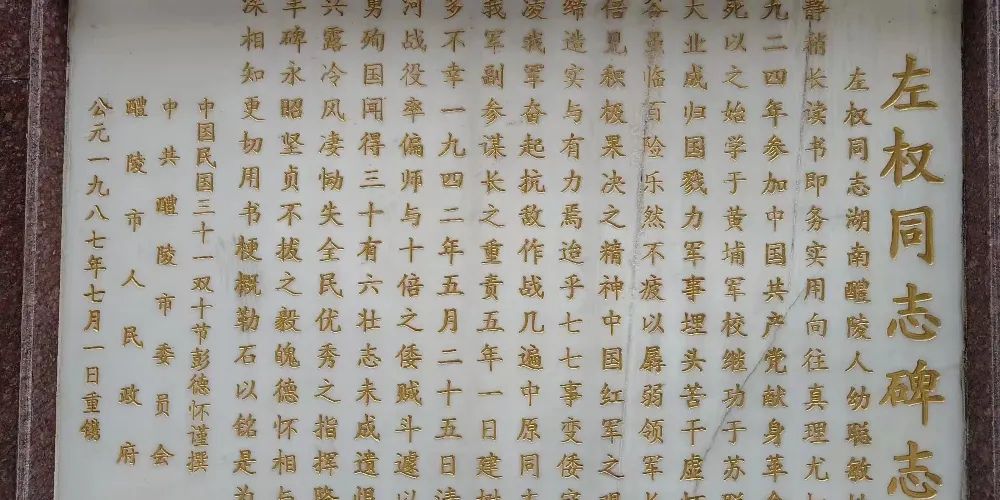 左权同志碑志
左权同志湖南醴陵人幼聪敏
静稍长读书即务实用向往真理尤
九二四年参加中国共产党献身革命
死以之始学于黄埔军校继功于苏联
大业成归国戮力军事埋头苦干虚怀
谷虽临百险乐然不疲以孱弱领军长
信见积极果决之精神中国红军之
缔造实与有力焉迨乎七七事变倭寇
凌我军奋起抗敌作战几遍中原同志
我军副参谋长之重责五年一日建树
多不幸一九四二年五月二十五日清
河战役率偏师与十倍之倭贼斗遽以
勇殉国闻得三十有六壮志未成遗恨
兴露冷风凄恸失全民优秀之指挥隆
丰碑永昭坚贞不拔之毅魄德怀相与
深相知更切用书梗概勒石以铭是为
中国民国三十一双十节彭德怀谨撰
中共醴陵市委员会
醴陵市人民政府
公元一九八七年七月一日重镌